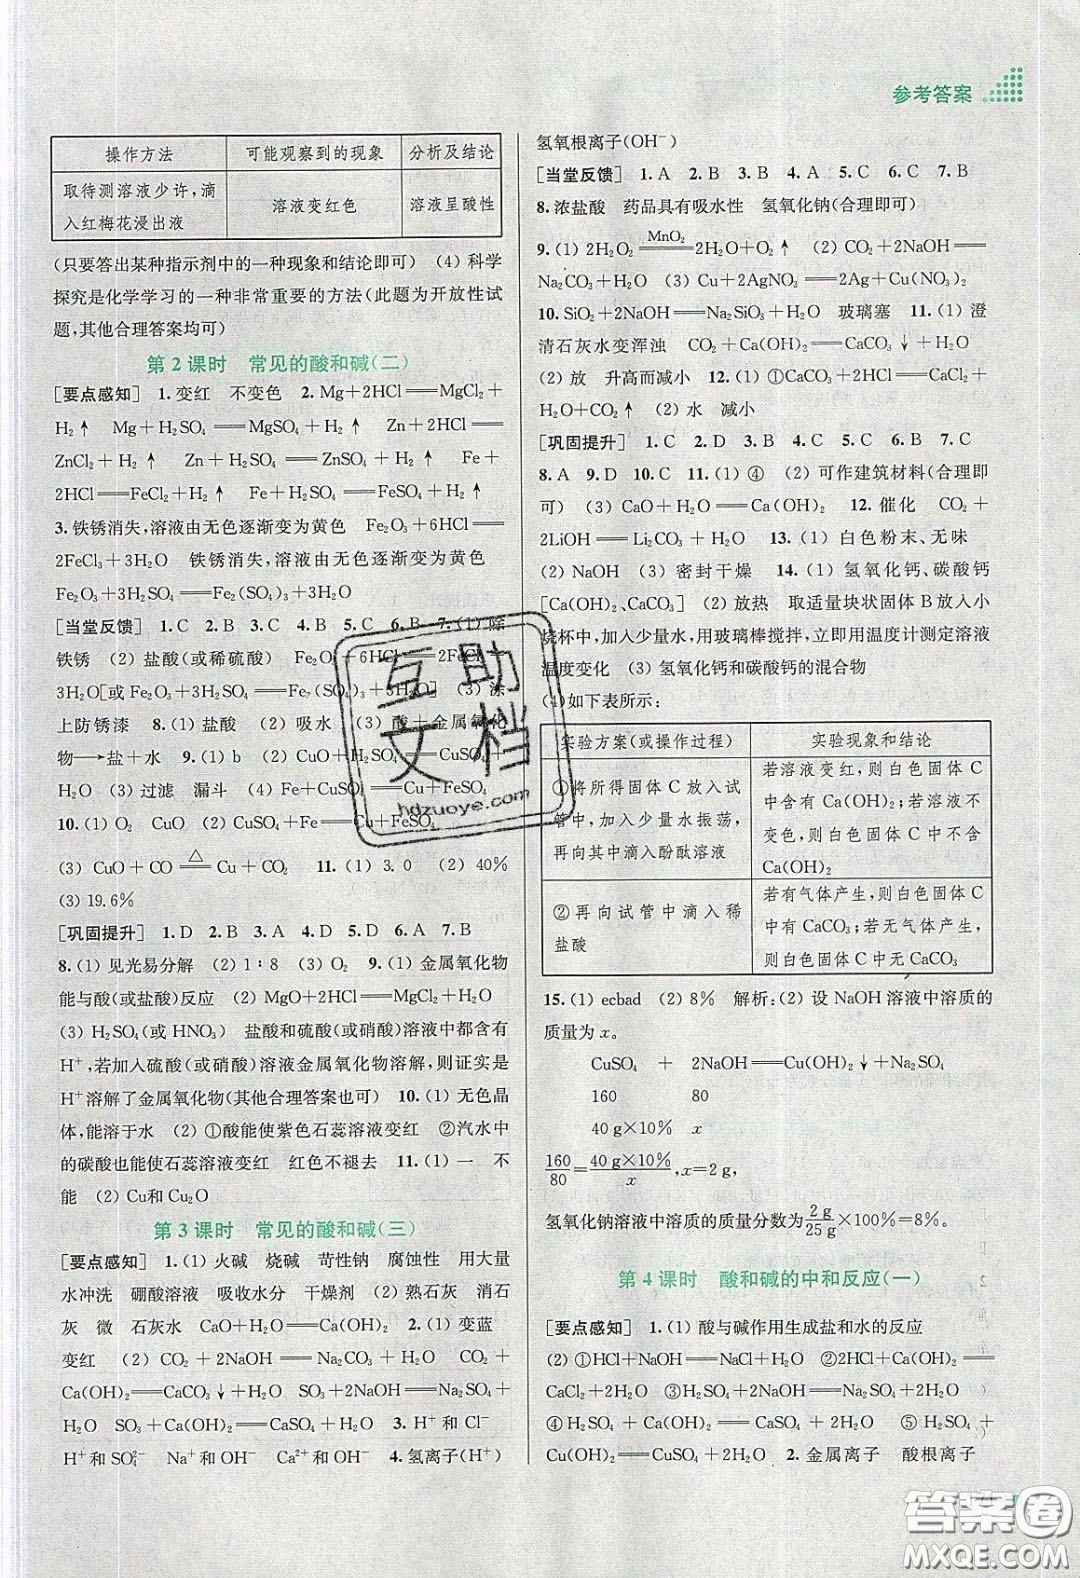 参考答案
操作方法 可能观察到的现象 分析及结论
取待测溶液少许,滴入红梅花浸出液 溶液变红色 溶液呈酸性
(只要答出某种指示剂中的一种现象和结论即可) (4) 科学
探究是化学学习的一种非常重要的方法(此题为开放性试
题,其他合理答案均可)
第 2 课时 常见的酸和碱(二)
[要点感知] 1. 变红 不变色 2. Mg+2HCl══MgCl₂+
H₂↑ Mg+H₂SO₄══MgSO₄+H₂↑ Zn+2HCl══
ZnCl₂+H₂↑ Zn+H₂SO₄══ZnSO₄+H₂↑ Fe+
2HCl══FeCl₂+H₂↑ Fe+H₂SO₄══FeSO₄+H₂↑
3. 铁锈消失,溶液由无色逐渐变为黄色 Fe₂O₃+6HCl══
2FeCl₃+3H₂O 铁锈消失,溶液由无色逐渐变为黄色
Fe₂O₃+3H₂SO₄══Fe₂(SO₄)₃+3H₂O
[当堂反馈] 1. C 2. B 3. C 4. B 5. C 6. B 7. (1) 除
铁锈 (2) 盐酸(或稀硫酸) Fe₂O₃+6HCl══2FeCl₃+
3H₂O[或 Fe₂O₃+3H₂SO₄══Fe₂(SO₄)₃+3H₂O] (3) 涂
上防锈漆 8. (1) 盐酸 (2) 吸水 (3) 酸+金属氧化
物→盐+水 9. (1) b (2) CuO+H₂SO₄══CuSO₄+
H₂O (3) 过滤 漏斗 (4) Fe+CuSO₄══Cu+FeSO₄
10. (1) O₂ CuO (2) CuSO₄+Fe══Cu+FeSO₄
(3) CuO+CO △══ Cu+CO₂ 11. (1) 3.0 (2) 40%
(3) 19.6%
[巩固提升] 1. D 2. B 3. A 4. D 5. D 6. A 7. B
8. (1) 见光易分解 (2) 1∶8 (3) O₂ 9. (1) 金属氧化物
能与酸(或盐酸)反应 (2) MgO+2HCl══MgCl₂+H₂O
(3) H₂SO₄(或 HNO₃) 盐酸和硫酸(或硝酸)溶液中都含有
H⁺,若加入硫酸(或硝酸)溶液金属氧化物溶解,则证实是
H⁺溶解了金属氧化物(其他合理答案也可) 10. (1) 无色晶
体,能溶于水 (2) ①酸能使紫色石蕊溶液变红 ②汽水中
的碳酸也能使石蕊溶液变红 红色不褪去 11. (1) 一 不
能 (2) Cu和 Cu₂O
第 3 课时 常见的酸和碱(三)
[要点感知] 1. (1) 火碱 烧碱 苛性钠 腐蚀性 用大量
水冲洗 硼酸溶液 吸收水分 干燥剂 (2) 熟石灰 消石
灰 微 石灰水 CaO+H₂O══Ca(OH)₂ 2. (1) 变蓝
变红 (2) CO₂+2NaOH══Na₂CO₃+H₂O CO₂+
Ca(OH)₂══CaCO₃↓+H₂O SO₃+2NaOH══Na₂SO₄+
H₂O SO₃+Ca(OH)₂══CaSO₄+H₂O 3. H⁺ 和 Cl⁻
H⁺ 和 SO₄²⁻ Na⁺ 和 OH⁻ Ca²⁺ 和 OH⁻ 4. 氢离子(H⁺)
氢氧根离子(OH⁻)
[当堂反馈] 1. A 2. B 3. B 4. A 5. C 6. C 7. B
8. 浓盐酸 药品具有吸水性 氢氧化钠(合理即可)
9. (1) 2H₂O₂ MnO₂══ 2H₂O+O₂↑ (2) CO₂+2NaOH══
Na₂CO₃+H₂O (3) Cu+2AgNO₃══2Ag+Cu(NO₃)₂
10. SiO₂+2NaOH══Na₂SiO₃+H₂O 玻璃塞 11. (1) 澄
清石灰水变浑浊 CO₂+Ca(OH)₂══CaCO₃↓+H₂O
(2) 放 升高而减小 12. (1) ①CaCO₃+2HCl══CaCl₂+
H₂O+CO₂↑ (2) 水 减小
[巩固提升] 1. C 2. D 3. D 4. C 5. C 6. B 7. C
8. A 9. D 10. C 11. (1) ④ (2) 可作建筑材料(合理即
可) (3) CaO+H₂O══Ca(OH)₂ 12. 催化 CO₂+
2LiOH══Li₂CO₃+H₂O 13. (1) 白色粉末、无味
(2) NaOH (3) 密封干燥 14. (1) 氢氧化钙、碳酸钙
[Ca(OH)₂、CaCO₃] (2) 放热 取适量块状固体 B 放入小
烧杯中,加入少量水,用玻璃棒搅拌,立即用温度计测定溶液
温度变化 (3) 氢氧化钙和碳酸钙的混合物
(4) 如下表所示:
实验方案(或操作过程) 实验现象和结论
①将所得固体 C 放入试管中,加入少量水振荡,再向其中滴入酚酞溶液 若溶液变红,则白色固体 C 中含有 Ca(OH)₂;若溶液不变色,则白色固体 C 中不含 Ca(OH)₂
②再向试管中滴入稀盐酸 若有气体产生,则白色固体 C 中有 CaCO₃;若无气体产生,则白色固体 C 中无 CaCO₃
15. (1) ecbad (2) 8% 解析:(2) 设 NaOH 溶液中溶质的
质量为 x。
CuSO₄ + 2NaOH══Cu(OH)₂↓+Na₂SO₄
160 80
40 g×10% x
160/80=40 g×10%/x,x=2 g,
氢氧化钠溶液中溶质的质量分数为 2 g/25 g×100%=8%。
第 4 课时 酸和碱的中和反应(一)
[要点感知] 1. (1) 酸与碱作用生成盐和水的反应
(2) ①HCl+NaOH══NaCl+H₂O ②2HCl+Ca(OH)₂══
CaCl₂+2H₂O ③H₂SO₄+2NaOH══Na₂SO₄+2H₂O
④ H₂SO₄+Ca(OH)₂══CaSO₄+2H₂O ⑤ H₂SO₄+
Cu(OH)₂══CuSO₄+2H₂O 2. 金属离子 酸根离子
互助文档
hdzuoye.com
答案圈
MXQE.COM